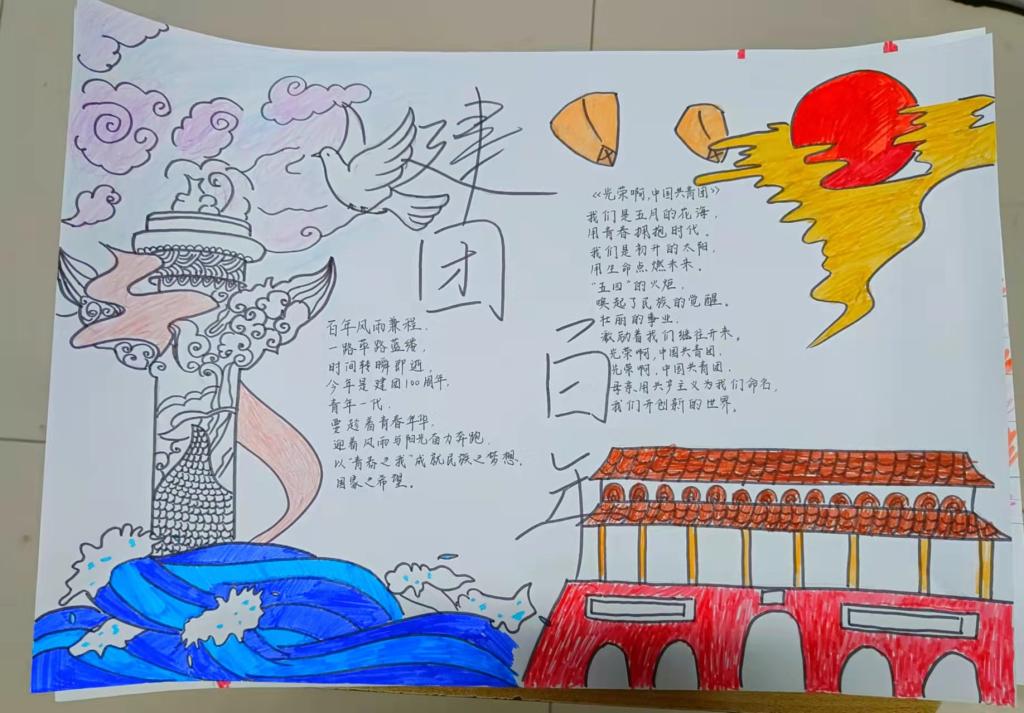 建
团
百
年
百年风雨兼程，
一路荜路蓝缕，
时间转瞬即逝，
今年是建团100周年，
青年一代，
要趁着青春年华，
迎着风雨与阳光奋力奔跑，
以“青春之我”成就民族之梦想，
国家之希望。
《光荣啊，中国共青团》
我们是五月的花海，
用青春拥抱时代。
我们是初升的太阳，
用生命点燃未来。
“五四”的火炬，
唤起了民族的觉醒。
壮丽的事业，
激励着我们继往开来。
光荣啊，中国共青团，
光荣啊，中国共青团，
母亲用共产主义为我们命名，
我们开创新的世界。